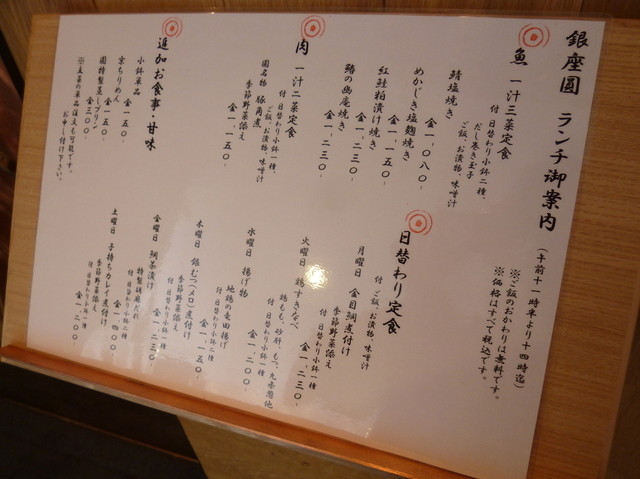 銀座圓 ランチ御案内
(午前十一時半より十四時迄)
※ご飯のおかわりは無料です。
※価格はすべて税込です。
魚 一汁三菜定食
付 日替わり小鉢二種、
だし巻き玉子
ご飯、お漬物、味噌汁
鯖塩焼き
金一、〇八〇-
めかじき塩麹焼き
金一、一五〇-
紅鮭粕漬け焼き
金一、二三〇-
鰆の幽庵焼き
金一、二三〇-
肉 一汁二菜定食
付 日替わり小鉢一種
ご飯、お漬物、味噌汁
圓名物 豚角煮
季節野菜添え
金一、一五〇-
追加お食事・甘味
小鉢単品
金一五〇-
京ちりめん
金一五〇-
圓特製蒸しプリン
金三〇〇-
※主菜の単品注文も可能です。
お申し付け下さい。
日替わり定食
付 ご飯、お漬物、味噌汁
月曜日 金目鯛煮付け
季節野菜添え
付 日替わり小鉢一種
金一、二三〇-
火曜日 鶏すきなべ
鶏もも、水肝、もつ、九条葱他
付 日替わり小鉢一種
金一、二〇〇-
水曜日 揚げ物
地鶏の竜田揚げ
付 日替わり小鉢二種
金一、一五〇-
木曜日 銀むつ(メロ)煮付け
季節野菜添え
付 日替わり小鉢一種
金一、二三〇-
金曜日 鯛茶漬け
特製胡麻だれ
付 日替わり小鉢一種
金一、四〇〇-
土曜日 子持ちカレイ煮付け
季節野菜添え
付 日替わり小鉢一種
金一、二〇〇-